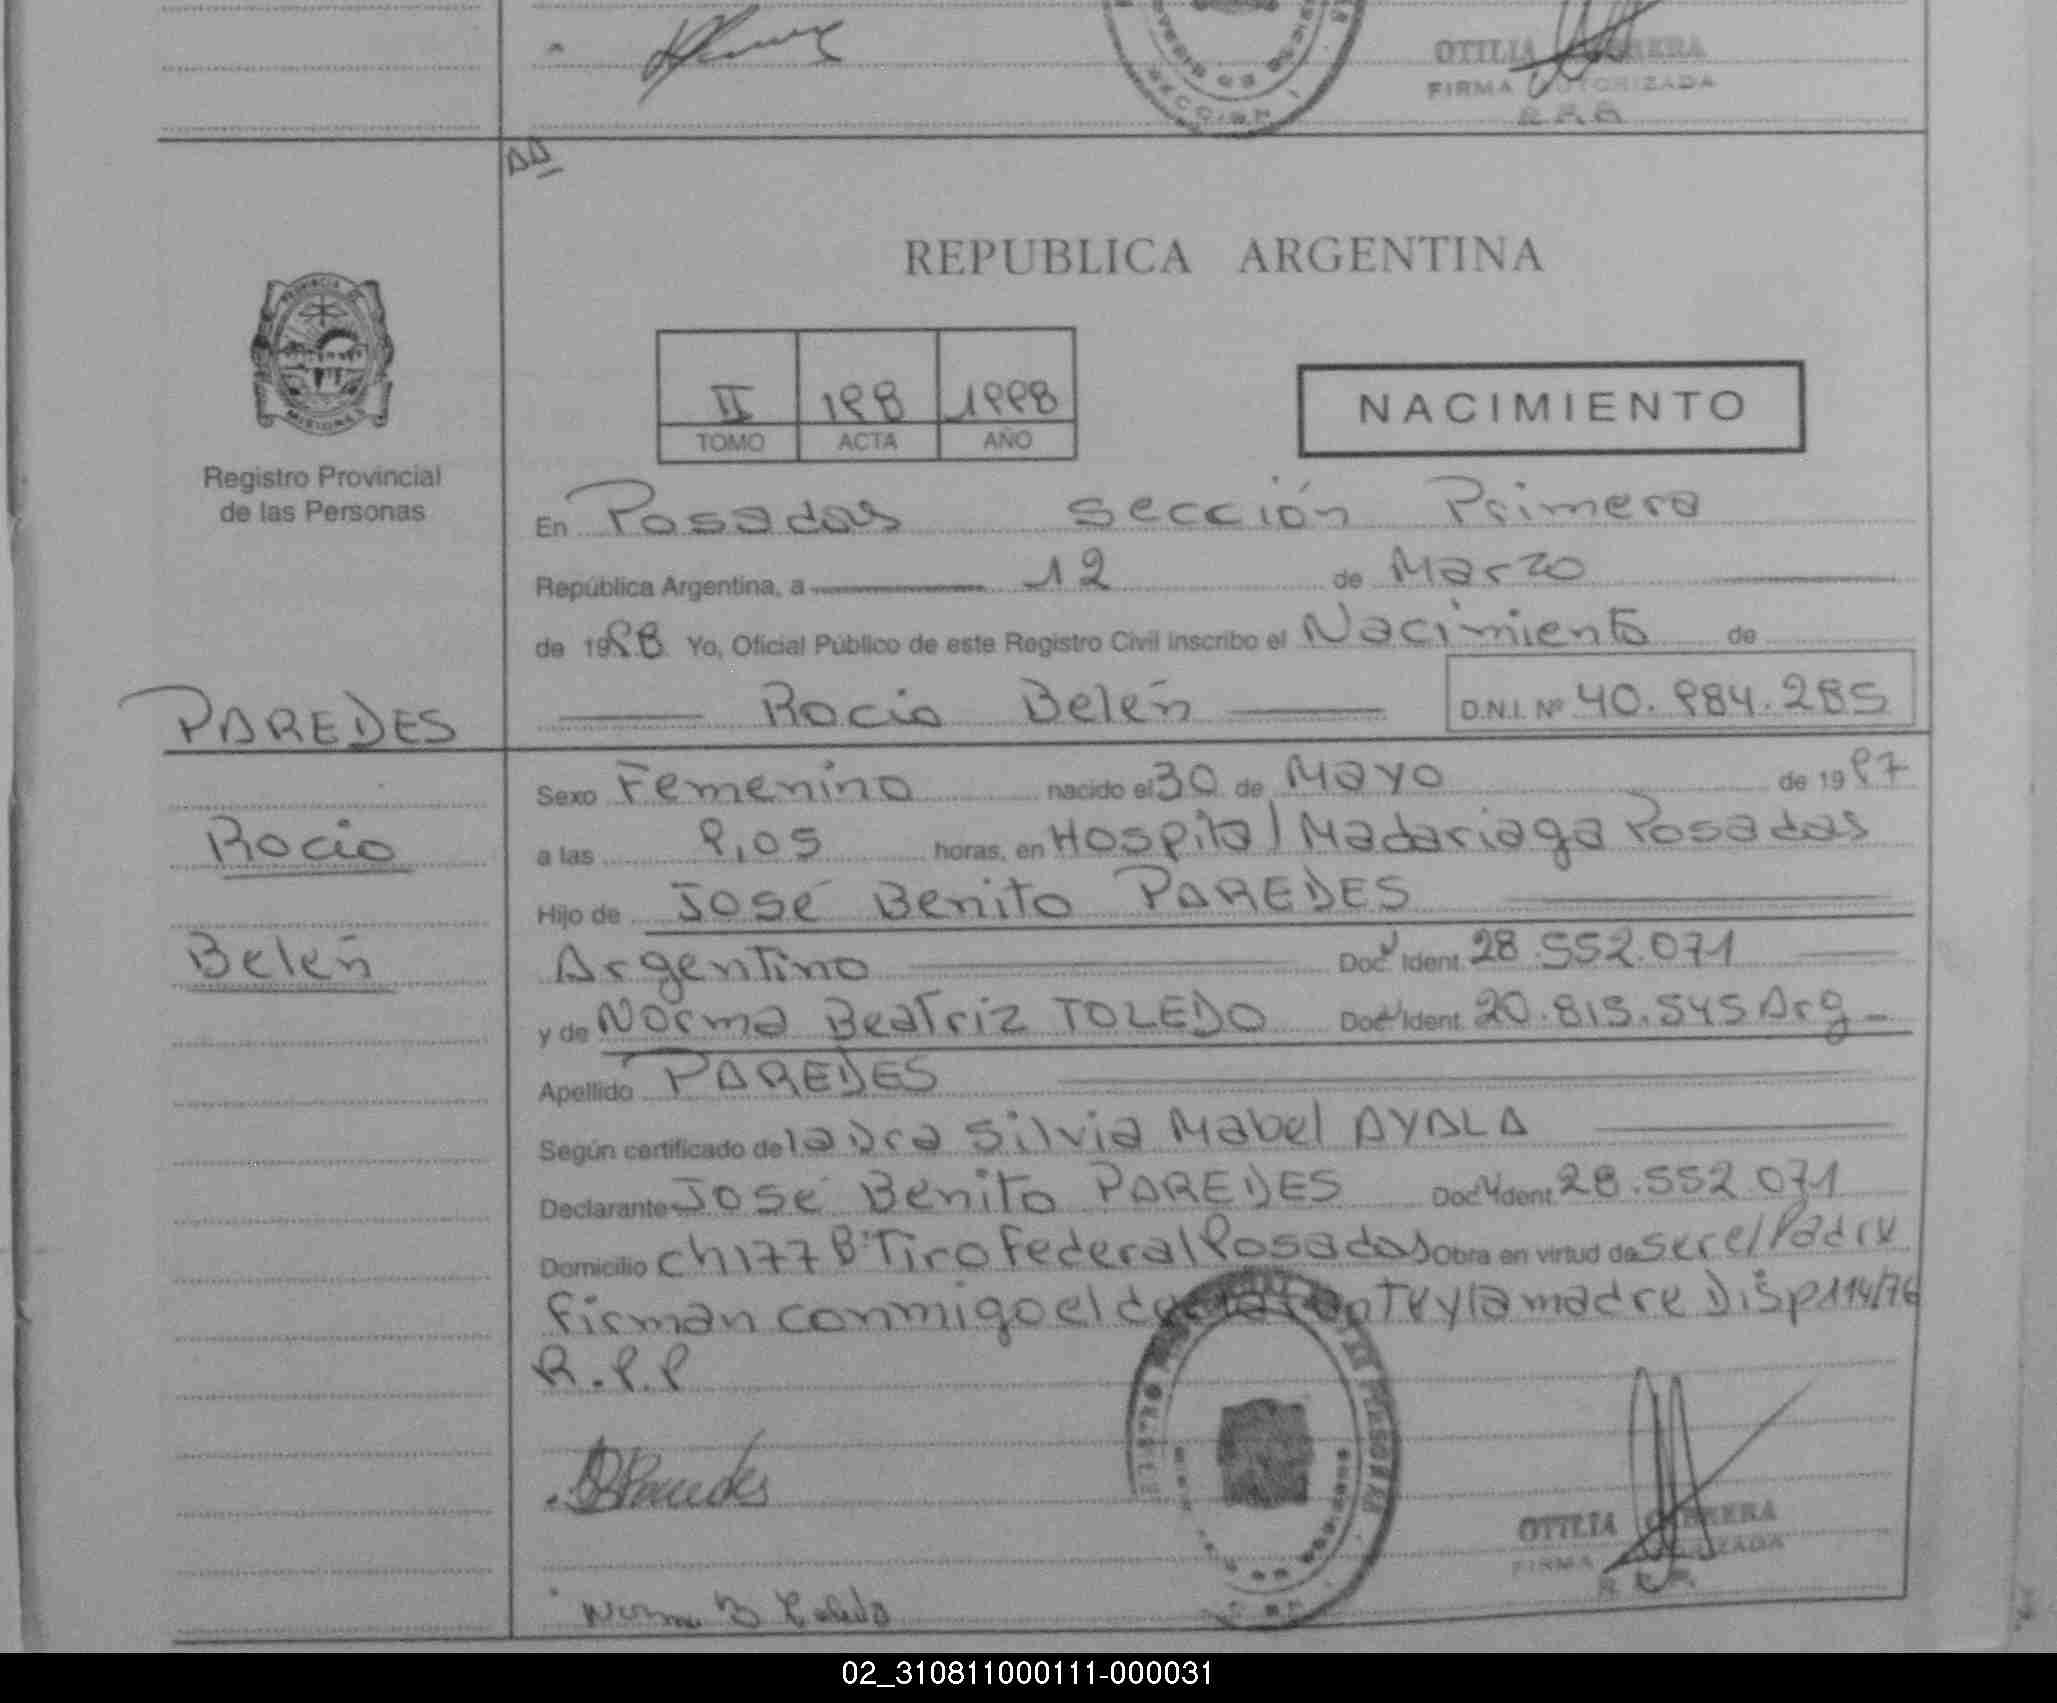 OTILIA CABRERA
FIRMA AUTORIZADA
AA
PROVINCIA DE
MISIONES
Registro Provincial
de las Personas
REPUBLICA ARGENTINA
II 198 1998
TOMO ACTA AÑO
NACIMIENTO
En Posadas sección Primera
República Argentina, a 12 de Marzo
de 1998 Yo, Oficial Público de este Registro Civil inscribo el Nacimiento de
PAREDES
Rocio Belén D.N.I. Nº 40.984.285
Sexo Femenino nacido el 30 de Mayo de 1997
Rocio
a las 9,05 horas, en Hospital Madariaga Posadas
Hijo de José Benito PAREDES
Belén
Argentino Doc Ident. 28.552.071
y de Norma Beatriz TOLEDO Doc Ident. 20.815.545 Arg
Apellido PAREDES
Según certificado de la Dra Silvia Mabel AYALA
Declarante José Benito PAREDES Doc Ident. 28.552.071
Domicilio ch 177 Bº Tiro Federal Posadas Obra en virtud de ser el Padre
firman conmigo el declarante y la madre Disp 114/76
R.P.P
Paredes
OTILIA CABRERA
FIRMA AUTORIZADA
Norma B Toledo
02_310811000111-000031